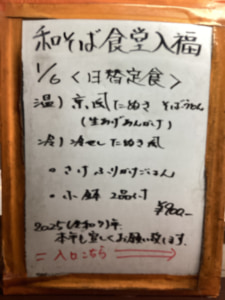 和そば食堂入福
1/6 〈日替定食〉
温) 京風たぬき そばうどん
(生あげあんかけ)
冷) 冷やしたぬき風
。さけふりかけごはん
。小鉢 2品付
¥800-
2025(令和7)年
本年も宜しくお願い致します。
= 入口こちら